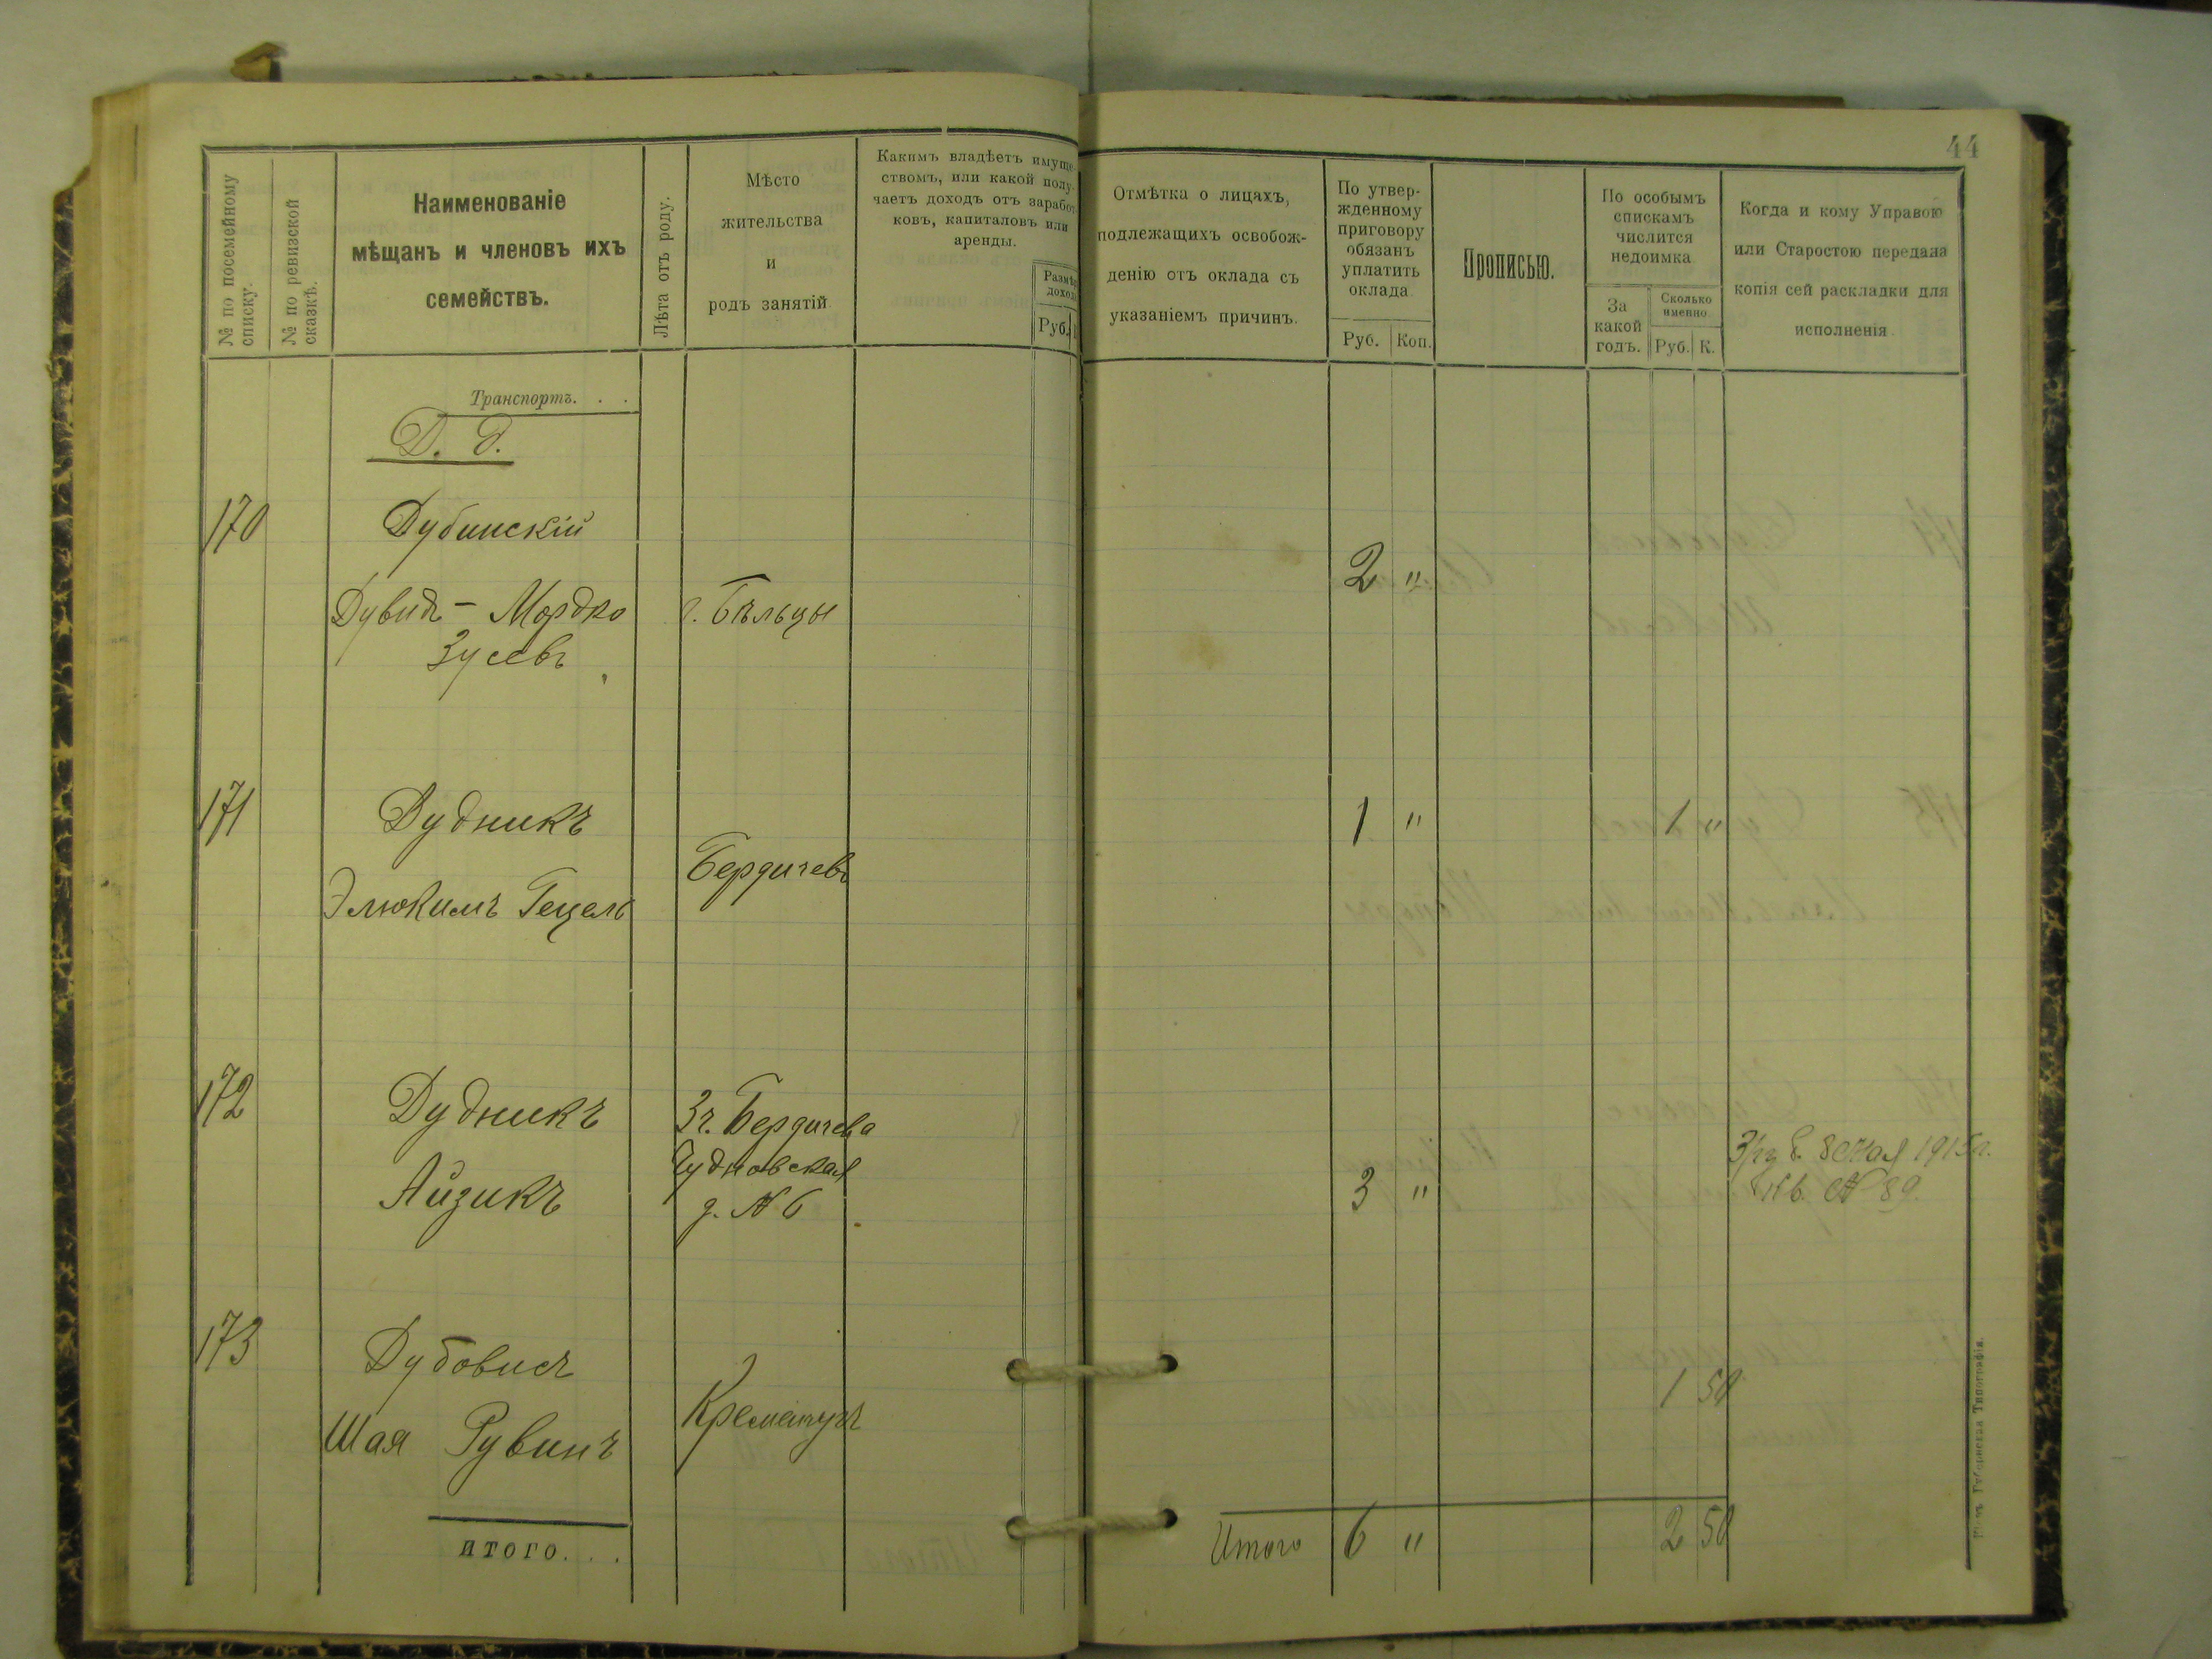 44
№ по посемейному списку.
№ по ревизской сказкѣ.
Наименованіе
мѣщанъ и членовъ ихъ
семействъ.
Лѣта отъ роду.
Мѣсто
жительства
и
родъ занятій
Какимъ владѣетъ имуще-
ствомъ, или какой полу-
чаетъ доходъ отъ заработ
ковъ, капиталовъ или
аренды.
Размѣр
дохода
Руб.
Отмѣтка о лицахъ,
подлежащихъ освобож-
денію отъ оклада съ
указаніемъ причинъ.
По утвер-
жденному
приговору
обязанъ
уплатить
оклада
Руб. Коп.
Прописью.
По особымъ
спискамъ
числится
недоимка
За
какой
годъ.
Сколько
именно
Руб. К.
Когда и кому Управою
или Старостою передана
копія сей раскладки для
исполненія
Транспортъ. . .
Д. д.
170 Дубинскій
2 "
Дувидъ - Мордко г. Бѣльцы
Зусевъ
171 Дудникъ 1 " 1 "
Бердичевъ
Элюкимъ Гецель
172 Дудникъ Зч. Бердичева
Чудновская
Айзикъ д. № 6 3 "
8 мая 1915 г.
Кв. № 89.
173 Дубовисъ
1 50
Шая Рувинъ Кременчугъ
итого. . .
Итого 6 " 2 50
Губернская Типографія.